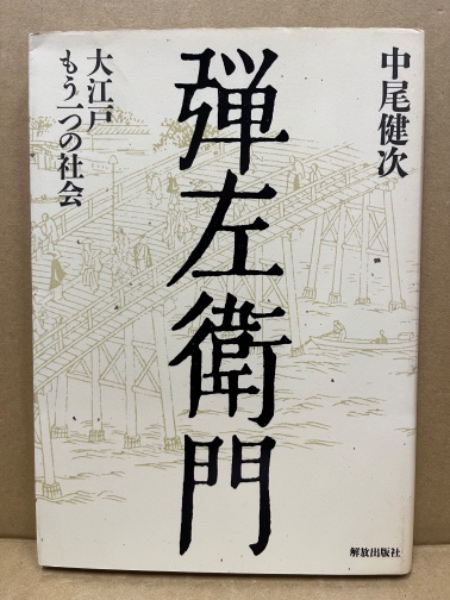 中尾健次
弾左衛門
大江戸
もう一つの社会
解放出版社